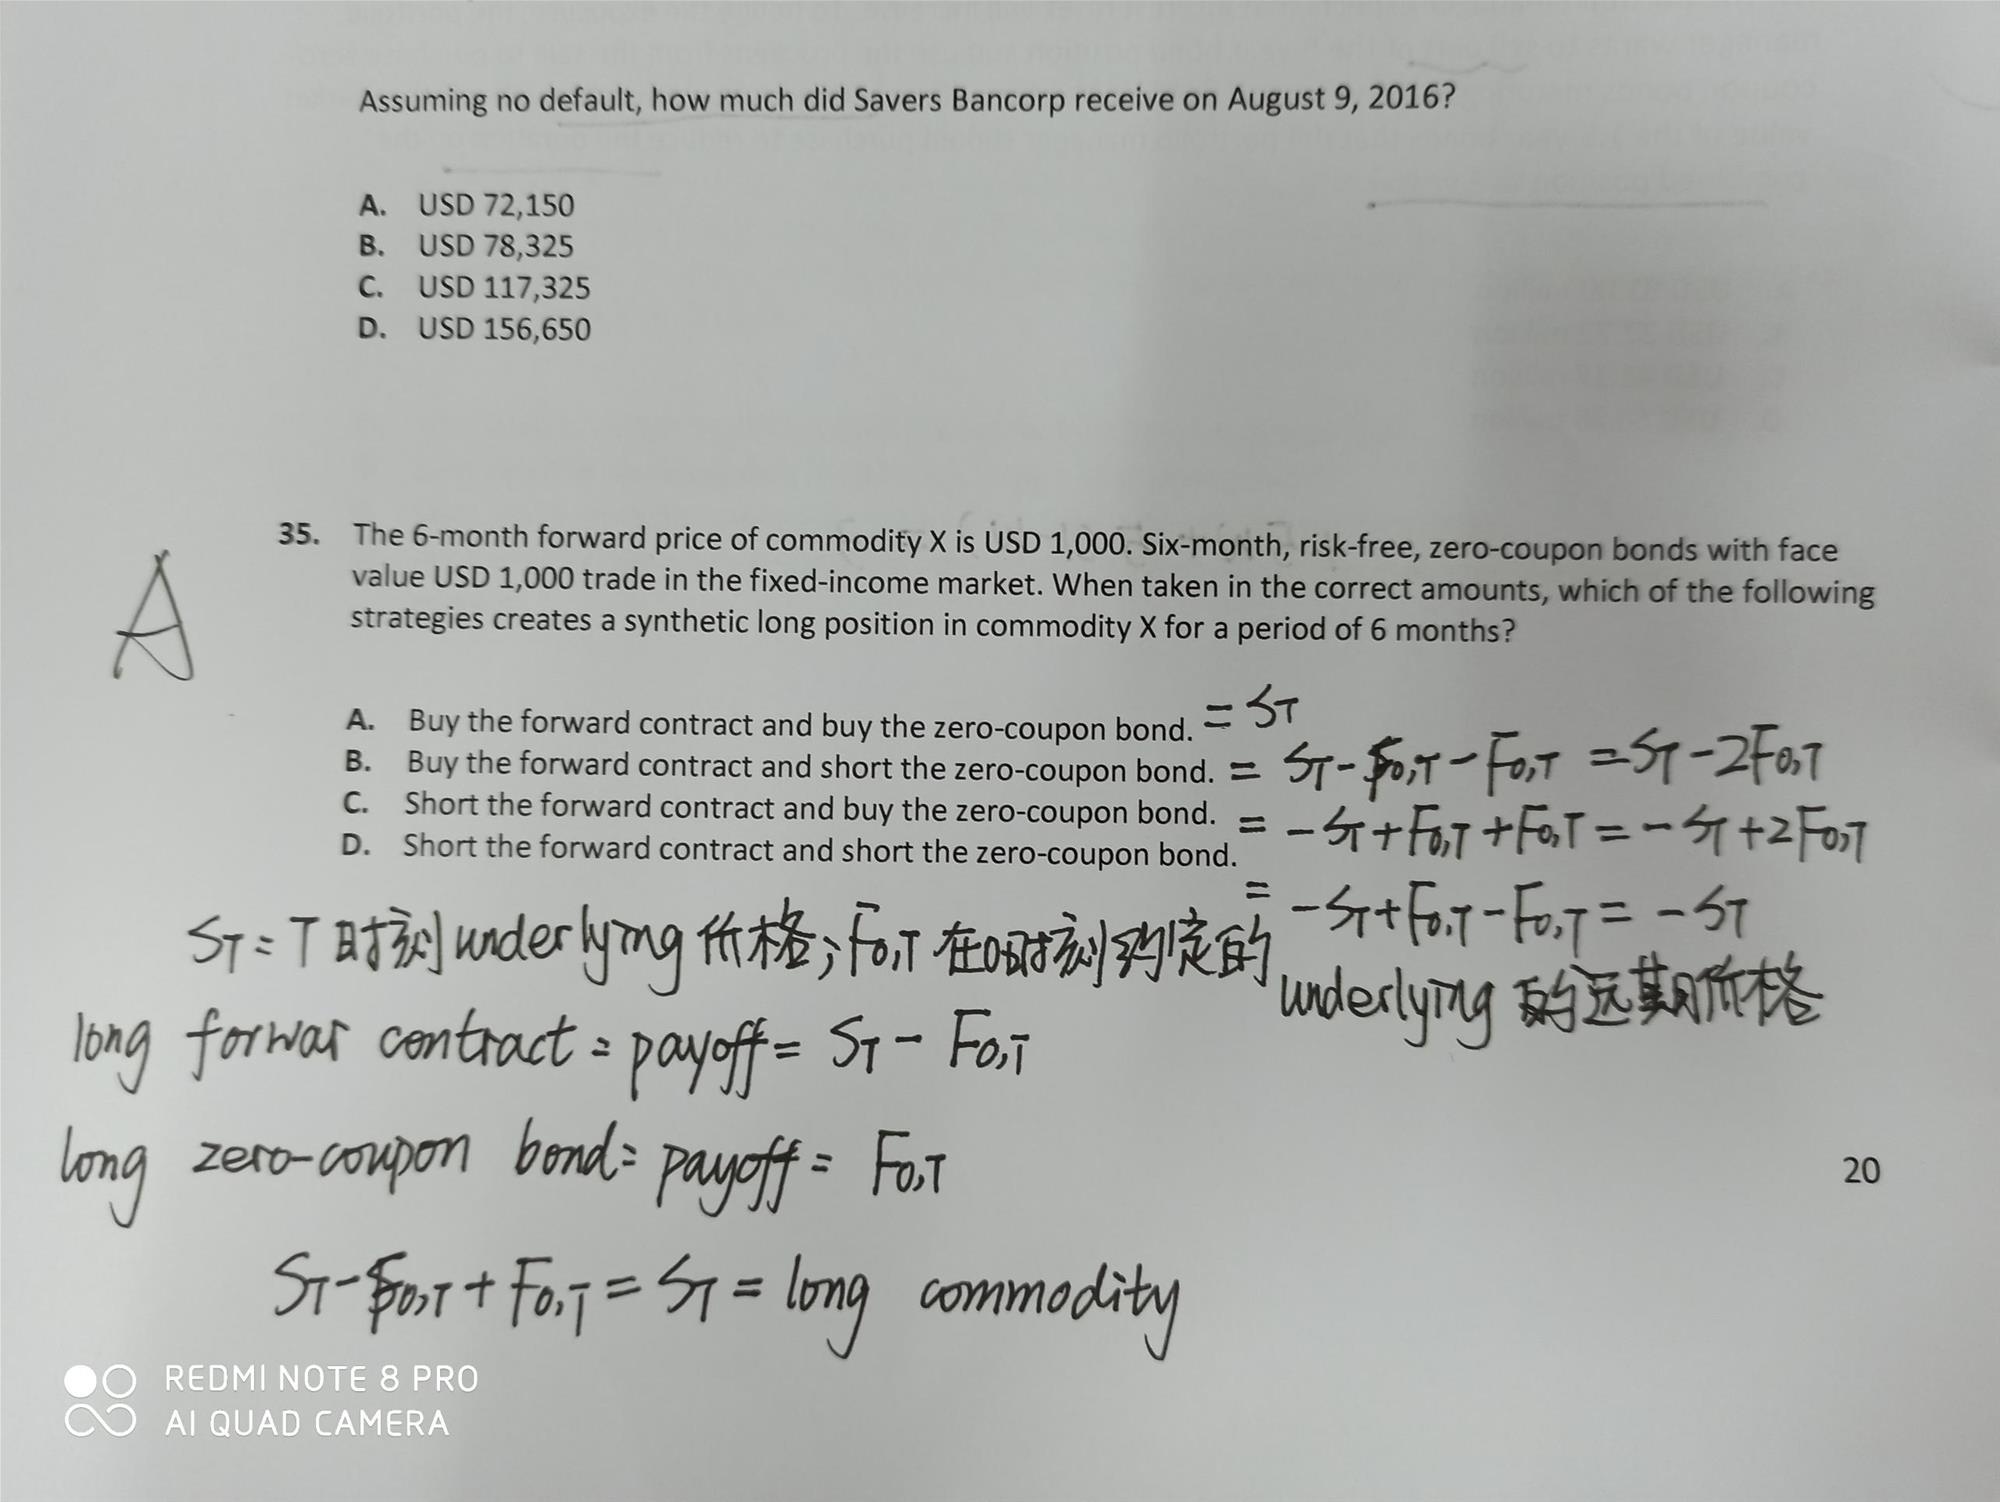 Assuming no default, how much did Savers Bancorp receive on August 9, 2016?
A. USD 72,150
B. USD 78,325
C. USD 117,325
D. USD 156,650
35. The 6-month forward price of commodity X is USD 1,000. Six-month, risk-free, zero-coupon bonds with face
value USD 1,000 trade in the fixed-income market. When taken in the correct amounts, which of the following
strategies creates a synthetic long position in commodity X for a period of 6 months?
A
A. Buy the forward contract and buy the zero-coupon bond. = ST
B. Buy the forward contract and short the zero-coupon bond. = ST-F0,T-F0,T=ST-2F0,T
C. Short the forward contract and buy the zero-coupon bond. = -ST+F0,T+F0,T=-ST+2F0,T
D. Short the forward contract and short the zero-coupon bond.
= -ST+F0,T-F0,T=-ST
ST=T时刻underlying价格;F0,T在0时刻约定的
underlying的远期价格
long forwar contract=payoff=ST-F0,T
long zero-coupon bond=payoff=F0,T
20
ST-F0,T+F0,T=ST=long commodity
REDMI NOTE 8 PRO
AI QUAD CAMERA